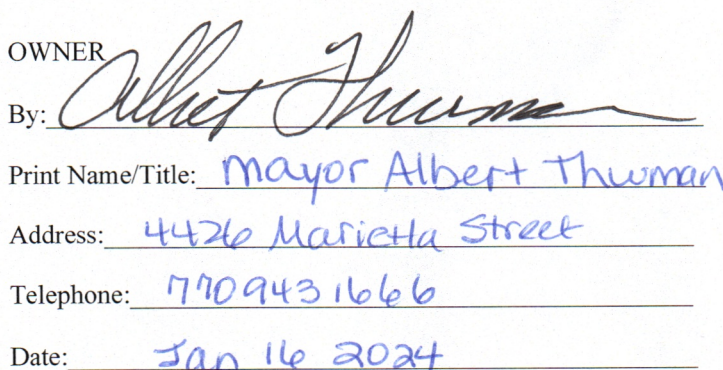 OWNER
By: Albert Thurman
Print Name/Title: Mayor Albert Thurman
Address: 4426 Marietta Street
Telephone: 7709431666
Date: Jan 16 2024